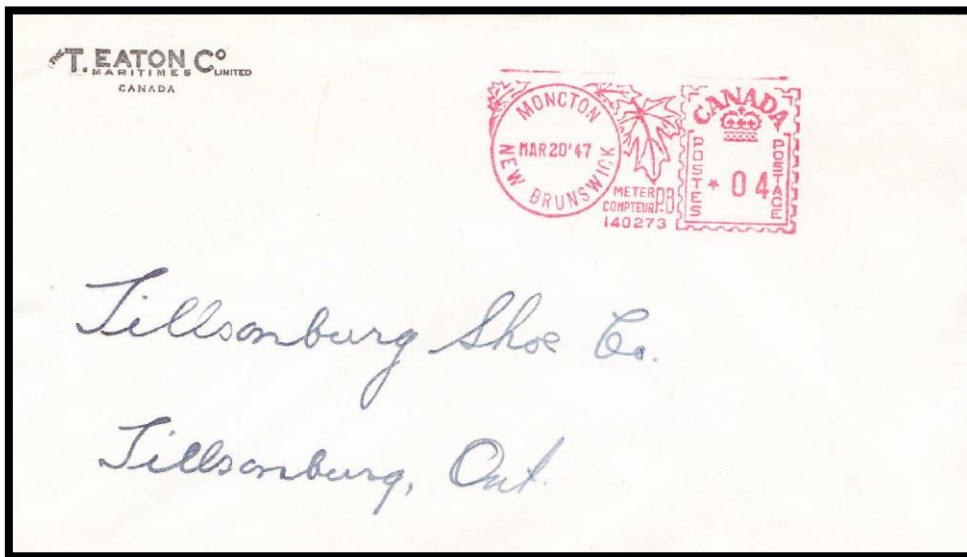 THE T. EATON Co
MARITIMES LIMITED
CANADA
MONCTON
MAR 20 '47
NEW BRUNSWICK
METER
COMPTEUR P.B.
140273
CANADA
POSTES
* 04
POSTAGE
Tillsonburg Shoe Co.
Tillsonburg, Ont.